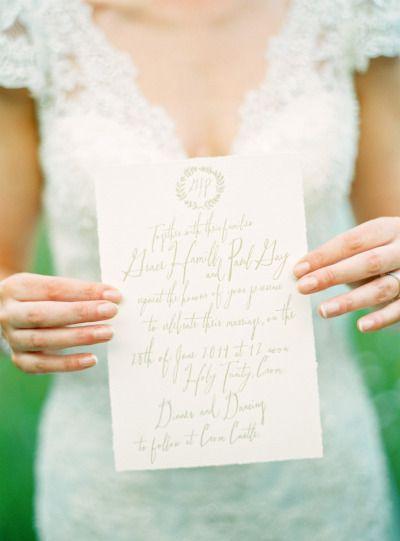 Together with their families
Grace Hamill
and Paul Gay
request the honour of your presence
to celebrate their marriage, on the
28th of June 2014 at 12 noon
Holy Trinity, Crom
Dinner and Dancing
to follow at Crom Castle.